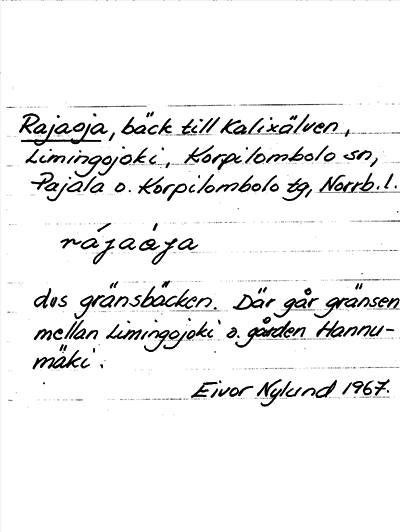 Rajaoja, bäck till Kalixälven,
Limingojoki, Korpilombolo sn,
Pajala o. Korpilombolo tg, Norrb. l.
rájaòja
dvs gränsbäcken. Där går gränsen
mellan Limingojoki o. gården Hannu-
mäki.
Eivor Nylund 1967.